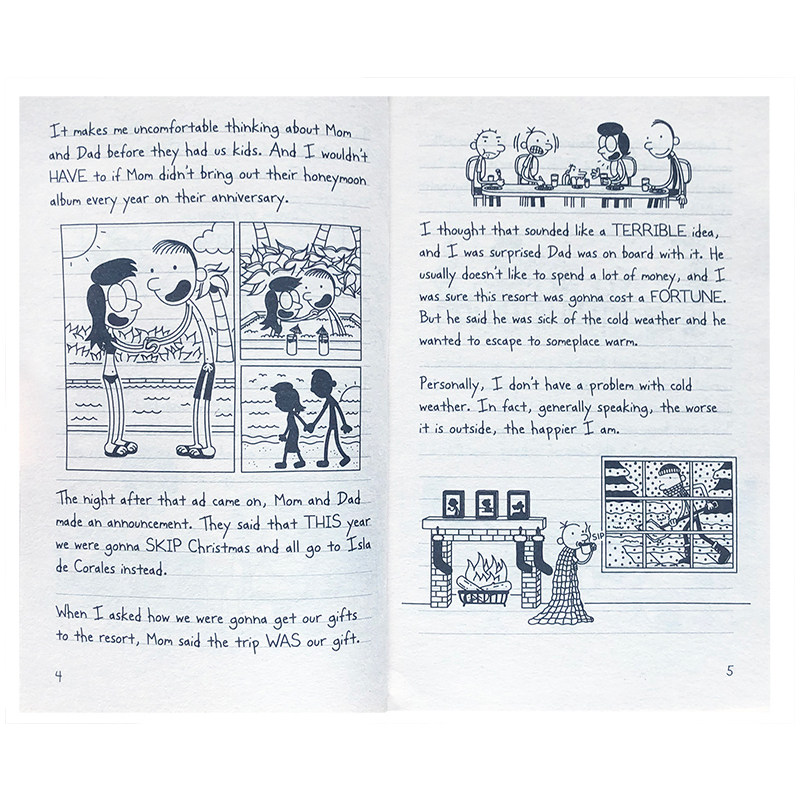 It makes me uncomfortable thinking about Mom
and Dad before they had us kids. And I wouldn't
HAVE to if Mom didn't bring out their honeymoon
album every year on their anniversary.
The night after that ad came on, Mom and Dad
made an announcement. They said that THIS year
we were gonna SKIP Christmas and all go to Isla
de Corales instead.
When I asked how we were gonna get our gifts
to the resort, Mom said the trip WAS our gift.
4
I thought that sounded like a TERRIBLE idea,
and I was surprised Dad was on board with it. He
usually doesn't like to spend a lot of money, and I
was sure this resort was gonna cost a FORTUNE.
But he said he was sick of the cold weather and he
wanted to escape to someplace warm.
Personally, I don't have a problem with cold
weather. In fact, generally speaking, the worse
it is outside, the happier I am.
SIP
5